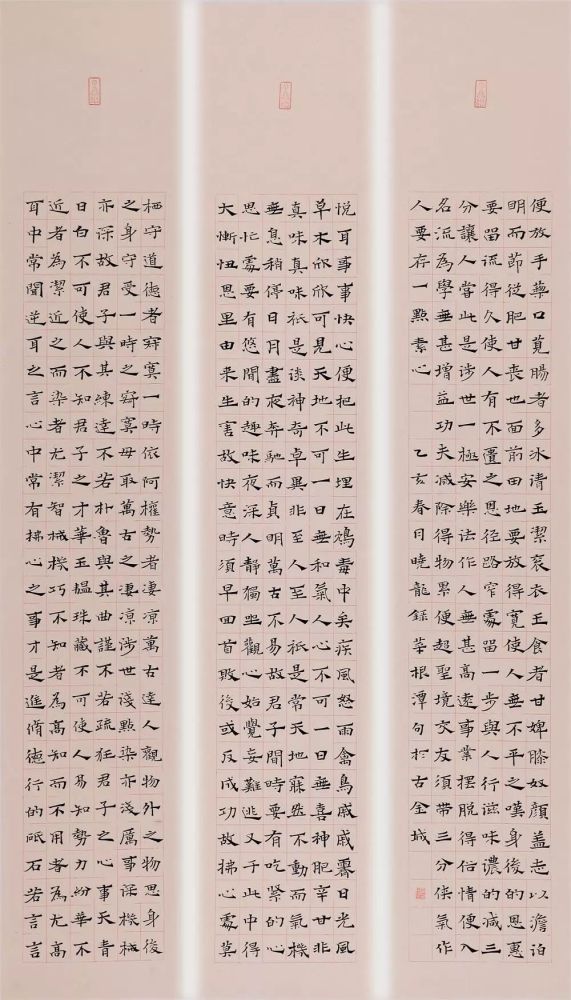 栖守道德者寂寞一時依阿權勢者淒涼萬古達人觀物外之物思身後
之身守受一時之寂寞毋取萬古之淒涼涉世淺點染亦淺歷事深機械
亦深故君子與其練達不若朴魯與其曲謹不若疏狂君子之心事天青
日白不可使人不知君子之才華玉韞珠藏不可使人易知勢力紛華不
近者為潔近之而染者尤潔智械機巧不知者為高知而不用者為尤高
耳中常聞逆耳之言心中常有拂心之事才是進脩德行的砥石若言言
悅耳事事快心便把此生埋在鴆毒中矣疾風怒雨禽鳥戚戚霽日光風
草木欣欣可見天地不可一日無和氣人心不可一日無喜神肥辛甘非
真味真味祇是淡神奇卓異非至人至人祇是常天地寂然不動而氣機
無息稍停日月晝夜奔馳而貞明萬古不易故君子閒時要有吃緊的心
思忙處要有悠閒的趣味夜深人靜獨坐觀心始覺妄難逃又于此中得
大慚忸恩里由來生害故快意時須早回首敗後或反成功故拂心處莫
便放手藜口莧腸者多冰清玉潔袞衣玉食者甘婢膝奴顏蓋志以澹泊
明而節從肥甘喪也面前田地要放得寬使人無不平之嘆身後的恩惠
要留流得久使人有不匱之恩徑路窄處留一步與人行滋味濃的減三
分讓人嘗此是涉世一極安樂法作人無甚高遠事業擺脫得俗情便入
名流為學無甚增益功夫減除得物累便超聖境交友須帶三分俠氣作
人要存一點素心 乙亥春日曉龍錄菜根潭句於古金城